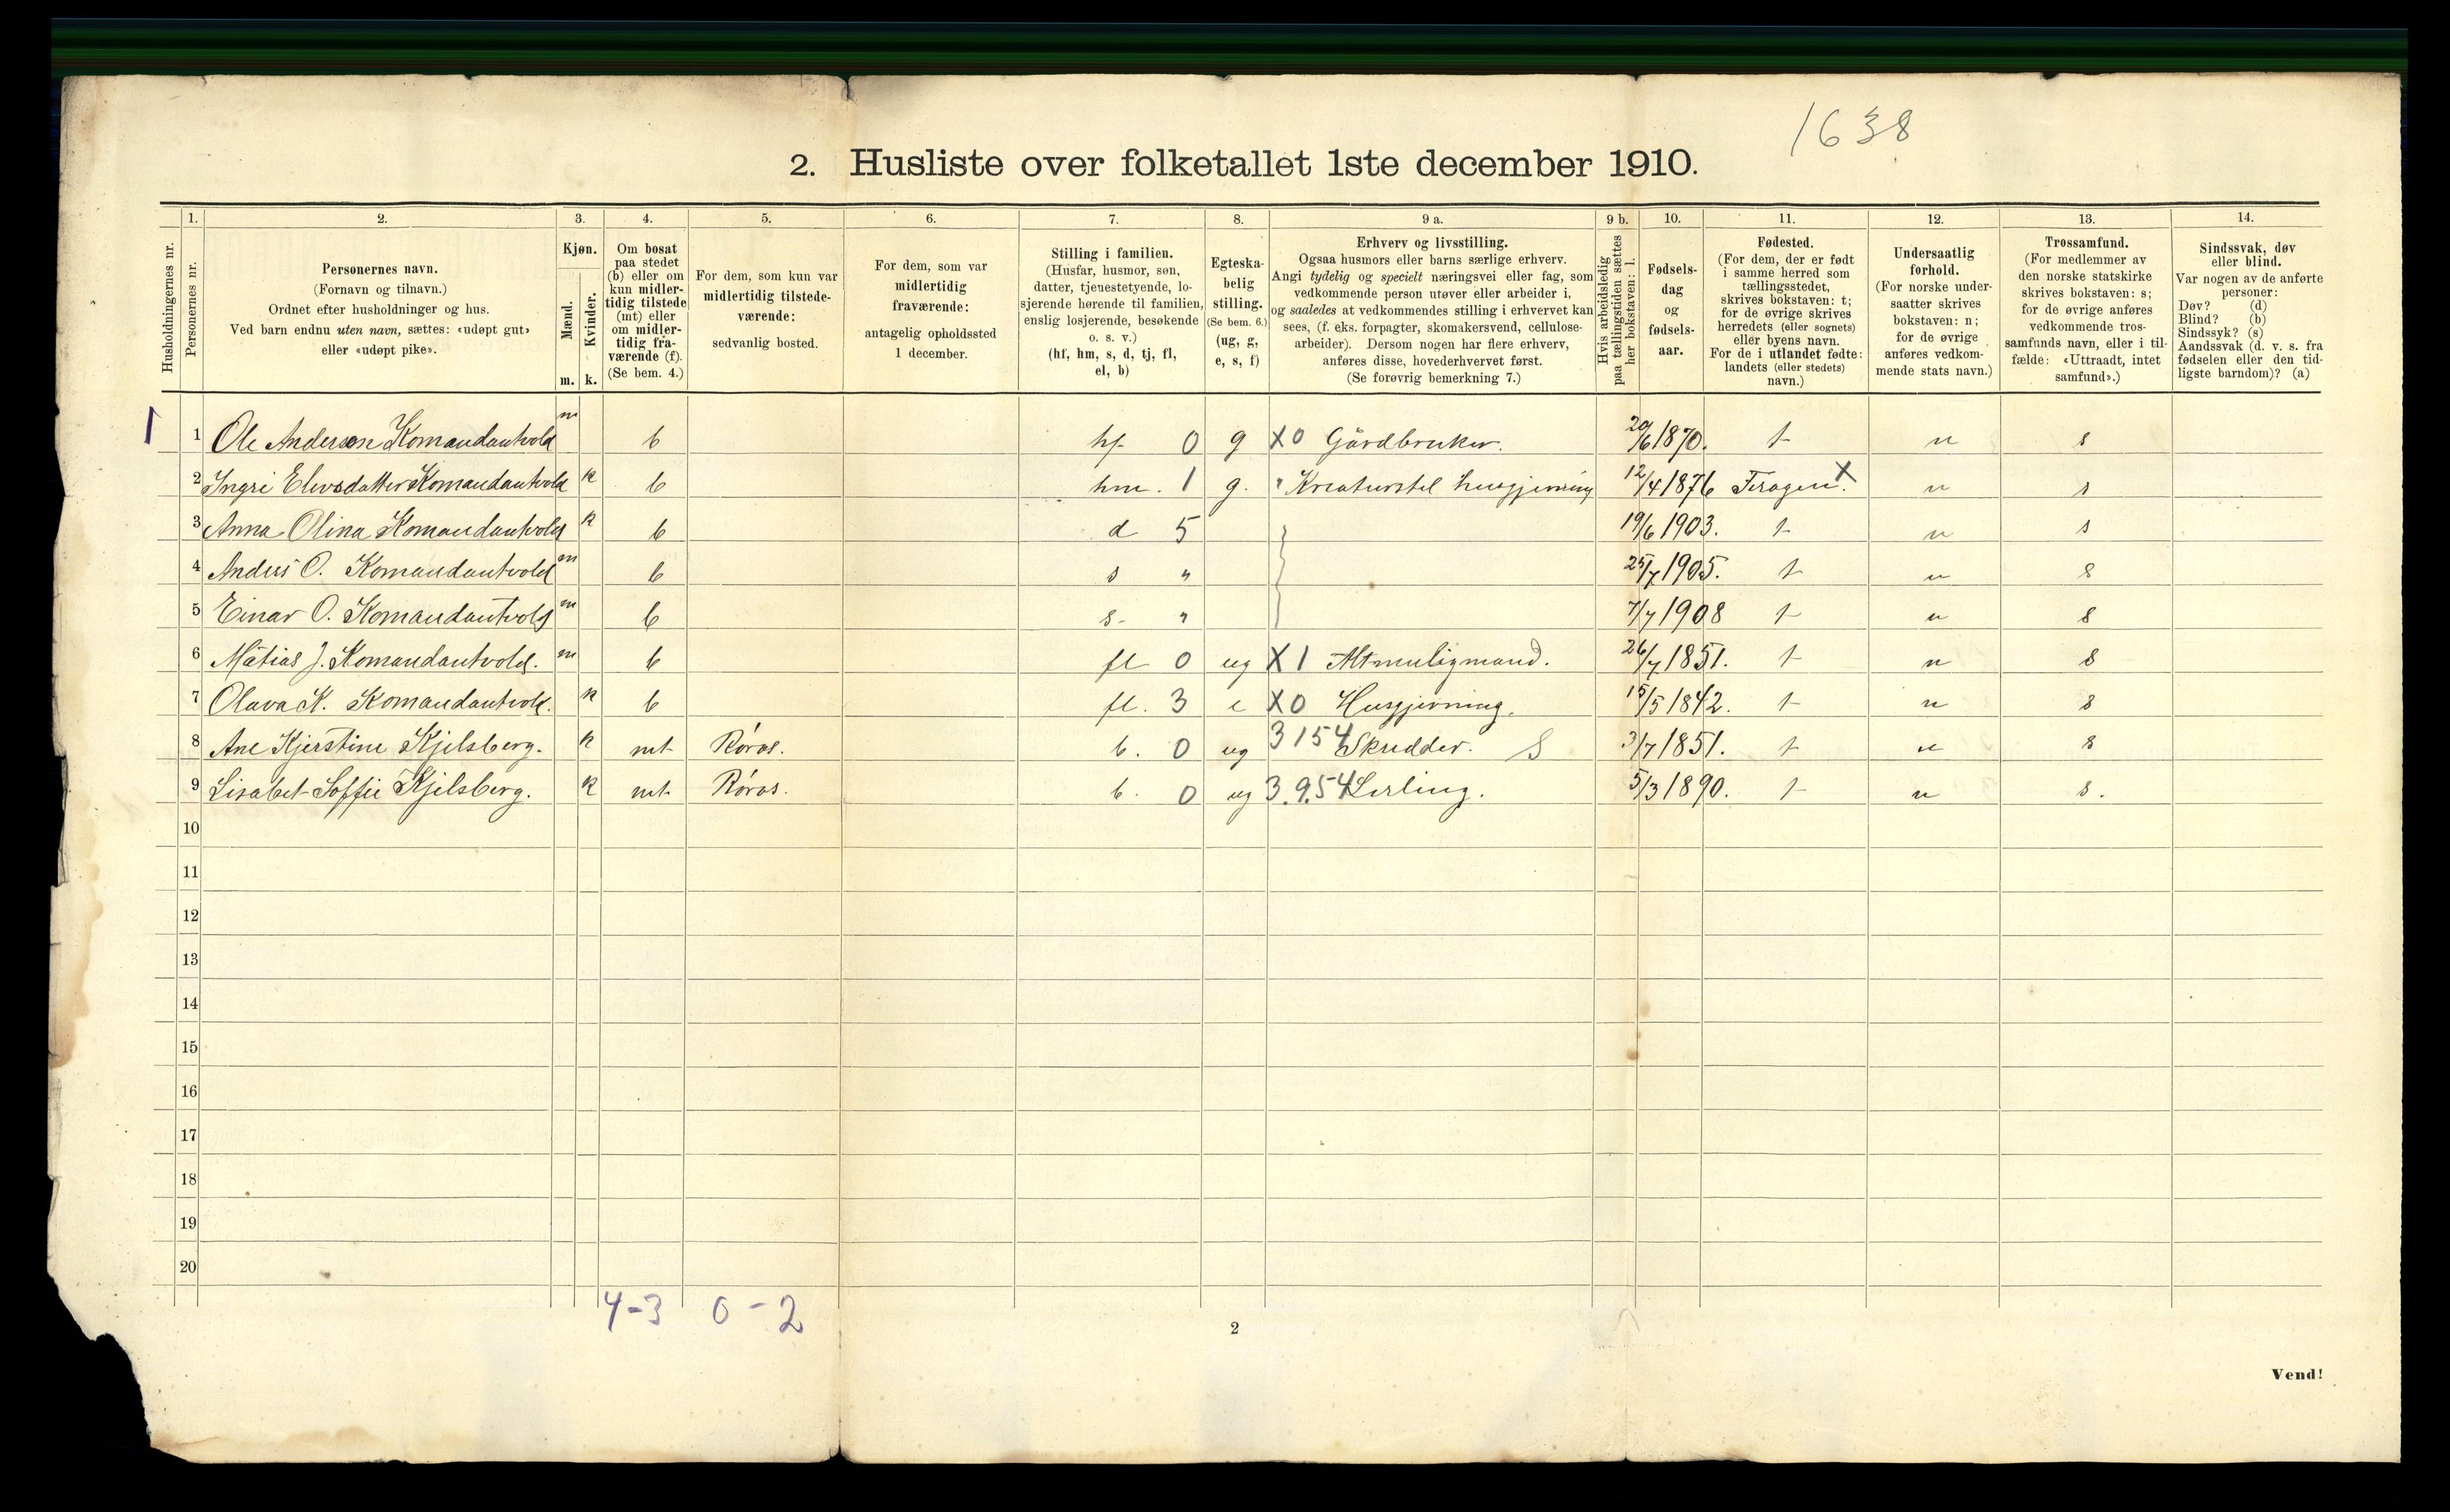 1638
2. Husliste over folketallet 1ste december 1910.
Husholdningernes nr.
1.
Personernes nr.
2.
Personernes navn.
(Fornavn og tilnavn.)
Ordnet efter husholdninger og hus.
Ved barn endnu uten navn, sættes: «udøpt gut»
eller «udøpt pike».
3.
Kjøn.
Mænd.
Kvinder.
m. k.
4.
Om bosat
paa stedet
(b) eller om
kun midler-
tidig tilstede
(mt) eller
om midler-
tidig fra-
værende (f).
(Se bem. 4.)
5.
For dem, som kun var
midlertidig tilstede-
værende:
sedvanlig bosted.
6.
For dem, som var
midlertidig
fraværende:
antagelig opholdssted
1 december.
7.
Stilling i familien.
(Husfar, husmor, søn,
datter, tjenestetyende, lo-
sjerende hørende til familien,
enslig losjerende, besøkende
o. s. v.)
(hf, hm, s, d, tj, fl,
el, b)
8.
Egteska-
belig
stilling.
(Se bem. 6.)
(ug, g,
e, s, f)
9 a.
Erhverv og livsstilling.
Ogsaa husmors eller barns særlige erhverv.
Angi tydelig og specielt næringsvei eller fag, som
vedkommende person utøver eller arbeider i,
og saaledes at vedkommendes stilling i erhvervet kan
sees, (f. eks. forpagter, skomakersvend, cellulose-
arbeider). Dersom nogen har flere erhverv,
anføres disse, hovederhvervet først.
(Se forøvrig bemerkning 7.)
9 b.
Hvis arbeidsledig
paa tællingstiden sættes
her bokstaven: l.
10.
Fødsels-
dag
og
fødsels-
aar.
11.
Fødested.
(For dem, der er født
i samme herred som
tællingsstedet,
skrives bokstaven: t;
for de øvrige skrives
herredets (eller sognets)
eller byens navn.
For de i utlandet fødte:
landets (eller stedets)
navn.)
12.
Undersaatlig
forhold.
(For norske under-
saatter skrives
bokstaven: n;
for de øvrige
anføres vedkom-
mende stats navn.)
13.
Trossamfund.
(For medlemmer av
den norske statskirke
skrives bokstaven: s;
for de øvrige anføres
vedkommende tros-
samfunds navn, eller i til-
fælde: «Uttraadt, intet
samfund».)
14.
Sindssvak, døv
eller blind.
Var nogen av de anførte
personer:
Døv? (d)
Blind? (b)
Sindssyk? (s)
Aandssvak (d. v. s. fra
fødselen eller den tid-
ligste barndom)? (a)
1 1 Ole Anderson Komandantvold m b hf 0 g X0 Gårdbruker. 20/6 1870. t n s
2 Ingri Elevsdatter Komandantvold k b hm. 1 g. " Kreaturstel husgjerning 12/4 1876 Feragen. X n s
3 Anna Olina Komandantvold k b d 5 19/6 1903. t n s
4 Anders O. Komandantvold m b s " 25/7 1905. t n s
5 Einar O. Komandantvold m b s- " 7/7 1908 t n s
6 Mátias J. Komandantvold. m b fl 0 ug X1 Altmuligmand. 26/7 1851. t n s
7 Olava K. Komandantvold. k b fl. 3 e X0 Husgjerning. 15/5 1842. t n s
8 Ane Kjerstine Kjelsberg. k mt Røros. b. 0 ug 3154 Skredder. S 3/7 1851. t n s
9 Lisabet Soffie Kjelsberg. k mt Røros. b. 0 ug 3.9.54 Lerling. 5/3 1890. t n s.
10
11
12
13
14
15
16
17
18
19
20
4-3 0-2
2
Vend!